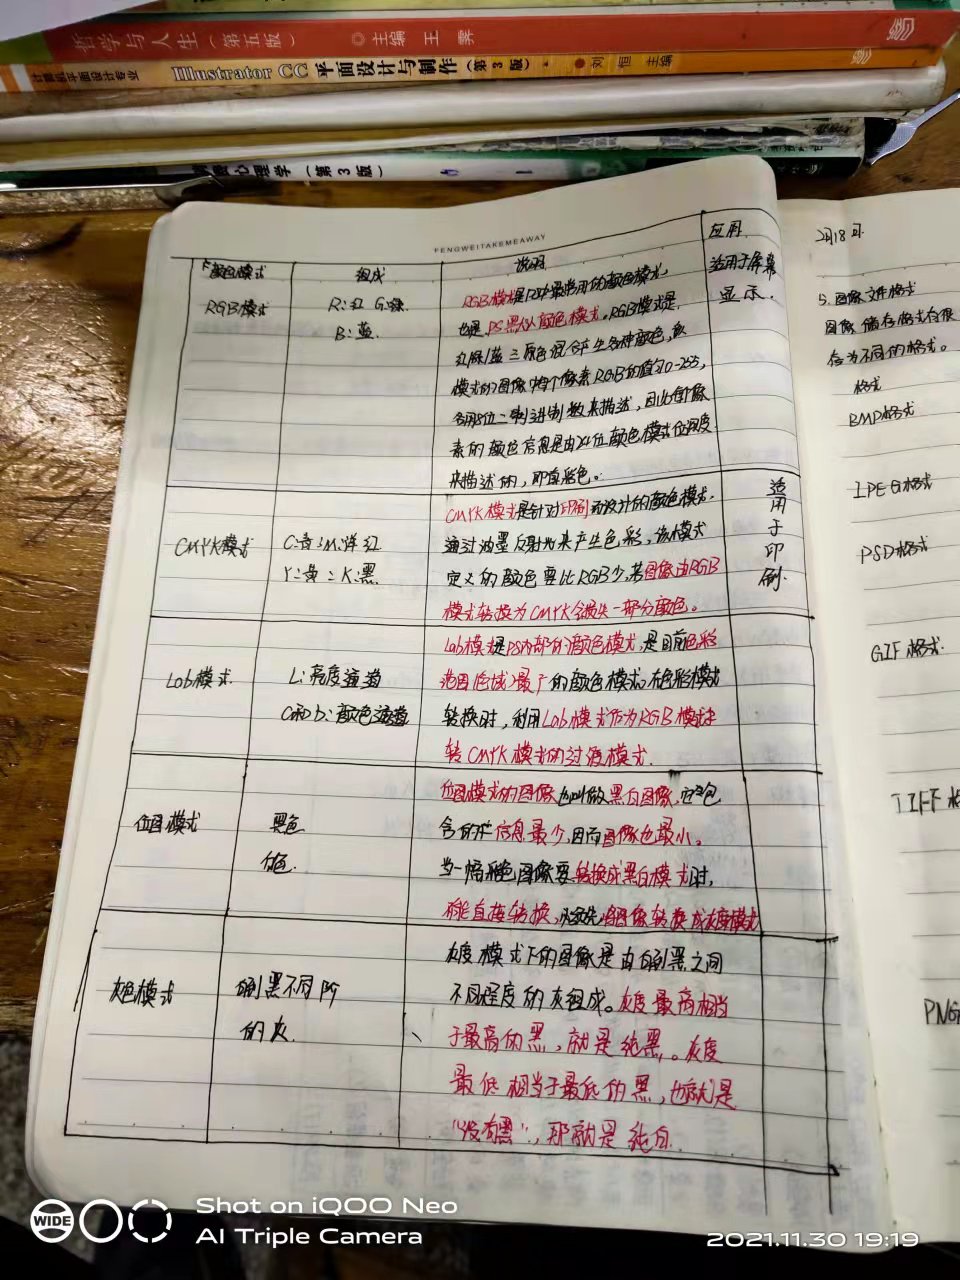 哲学与人生（第五版） ◎主编 王霁
计算机平面设计专业 Illustrator CC 平面设计与制作（第3版） 刘恒 主编
心理学（第3版）
FENGWEITAKEMEAWAY
颜色模式 组成 说明 应用
RGB模式 R:红 G:绿
B:蓝
RGB模式是PS中最常用的颜色模式,
也是PS默认颜色模式。RGB模式是
红/绿/蓝三原色混合产生各种颜色,
模式的图像中每个像素RGB的值为0-255,
各用8位二进制数来描述,因此每个像
素的颜色信息是由24位颜色模式位深度
来描述的,即真彩色。
适用于屏幕
显示.
CMYK模式 C:青:M:洋红
Y:黄:K:黑
CMYK模式是针对印刷而设计的颜色模式.
通过油墨反射光来产生色彩,该模式
定义的颜色要比RGB少,若图像由RGB
模式转换为CMYK会损失一部分颜色。
适用于印刷.
Lab模式 L:亮度通道
a和b:颜色通道
Lab模式是PS内部的颜色模式,是目前色彩
范围(区域)最广的颜色模式。在色彩模式
转换时,利用Lab模式作为RGB模式
转CMYK模式的过渡模式.
位图模式 黑色
白色.
位图模式的图像也叫做黑白图像,它包
含的信息最少,因而图像也最小。
当一幅彩色图像要转换成黑白模式时,
不能直接转换,必须先将图像转换成灰度模式
灰色模式 白到黑不同阶
的灰
灰度模式下的图像是由白到黑之间
不同程度的灰组成。灰度最高相当
于最高的黑,就是纯黑。灰度
最低相当于最低的黑,也就是
"没有黑",那就是纯白.
2月18日.
5.图像文件格式
图像储存格式有很
存为不同的格式。
格式
BMP格式
JPEG格式
PSD格式
GIF格式.
TIFF格
PNG
WIDE
Shot on iQOO Neo
AI Triple Camera
2021.11.30 19:19